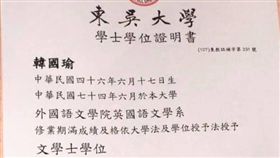 東吳大學
學士學位證明書
(107)東教證補字第231號
韓國瑜
中華民國四十六年六月十七日生
中華民國七十四年六月於本大學
外國語文學院英國語文學系
修業期滿成績及格依大學法及學位授予法授予
文學士學位